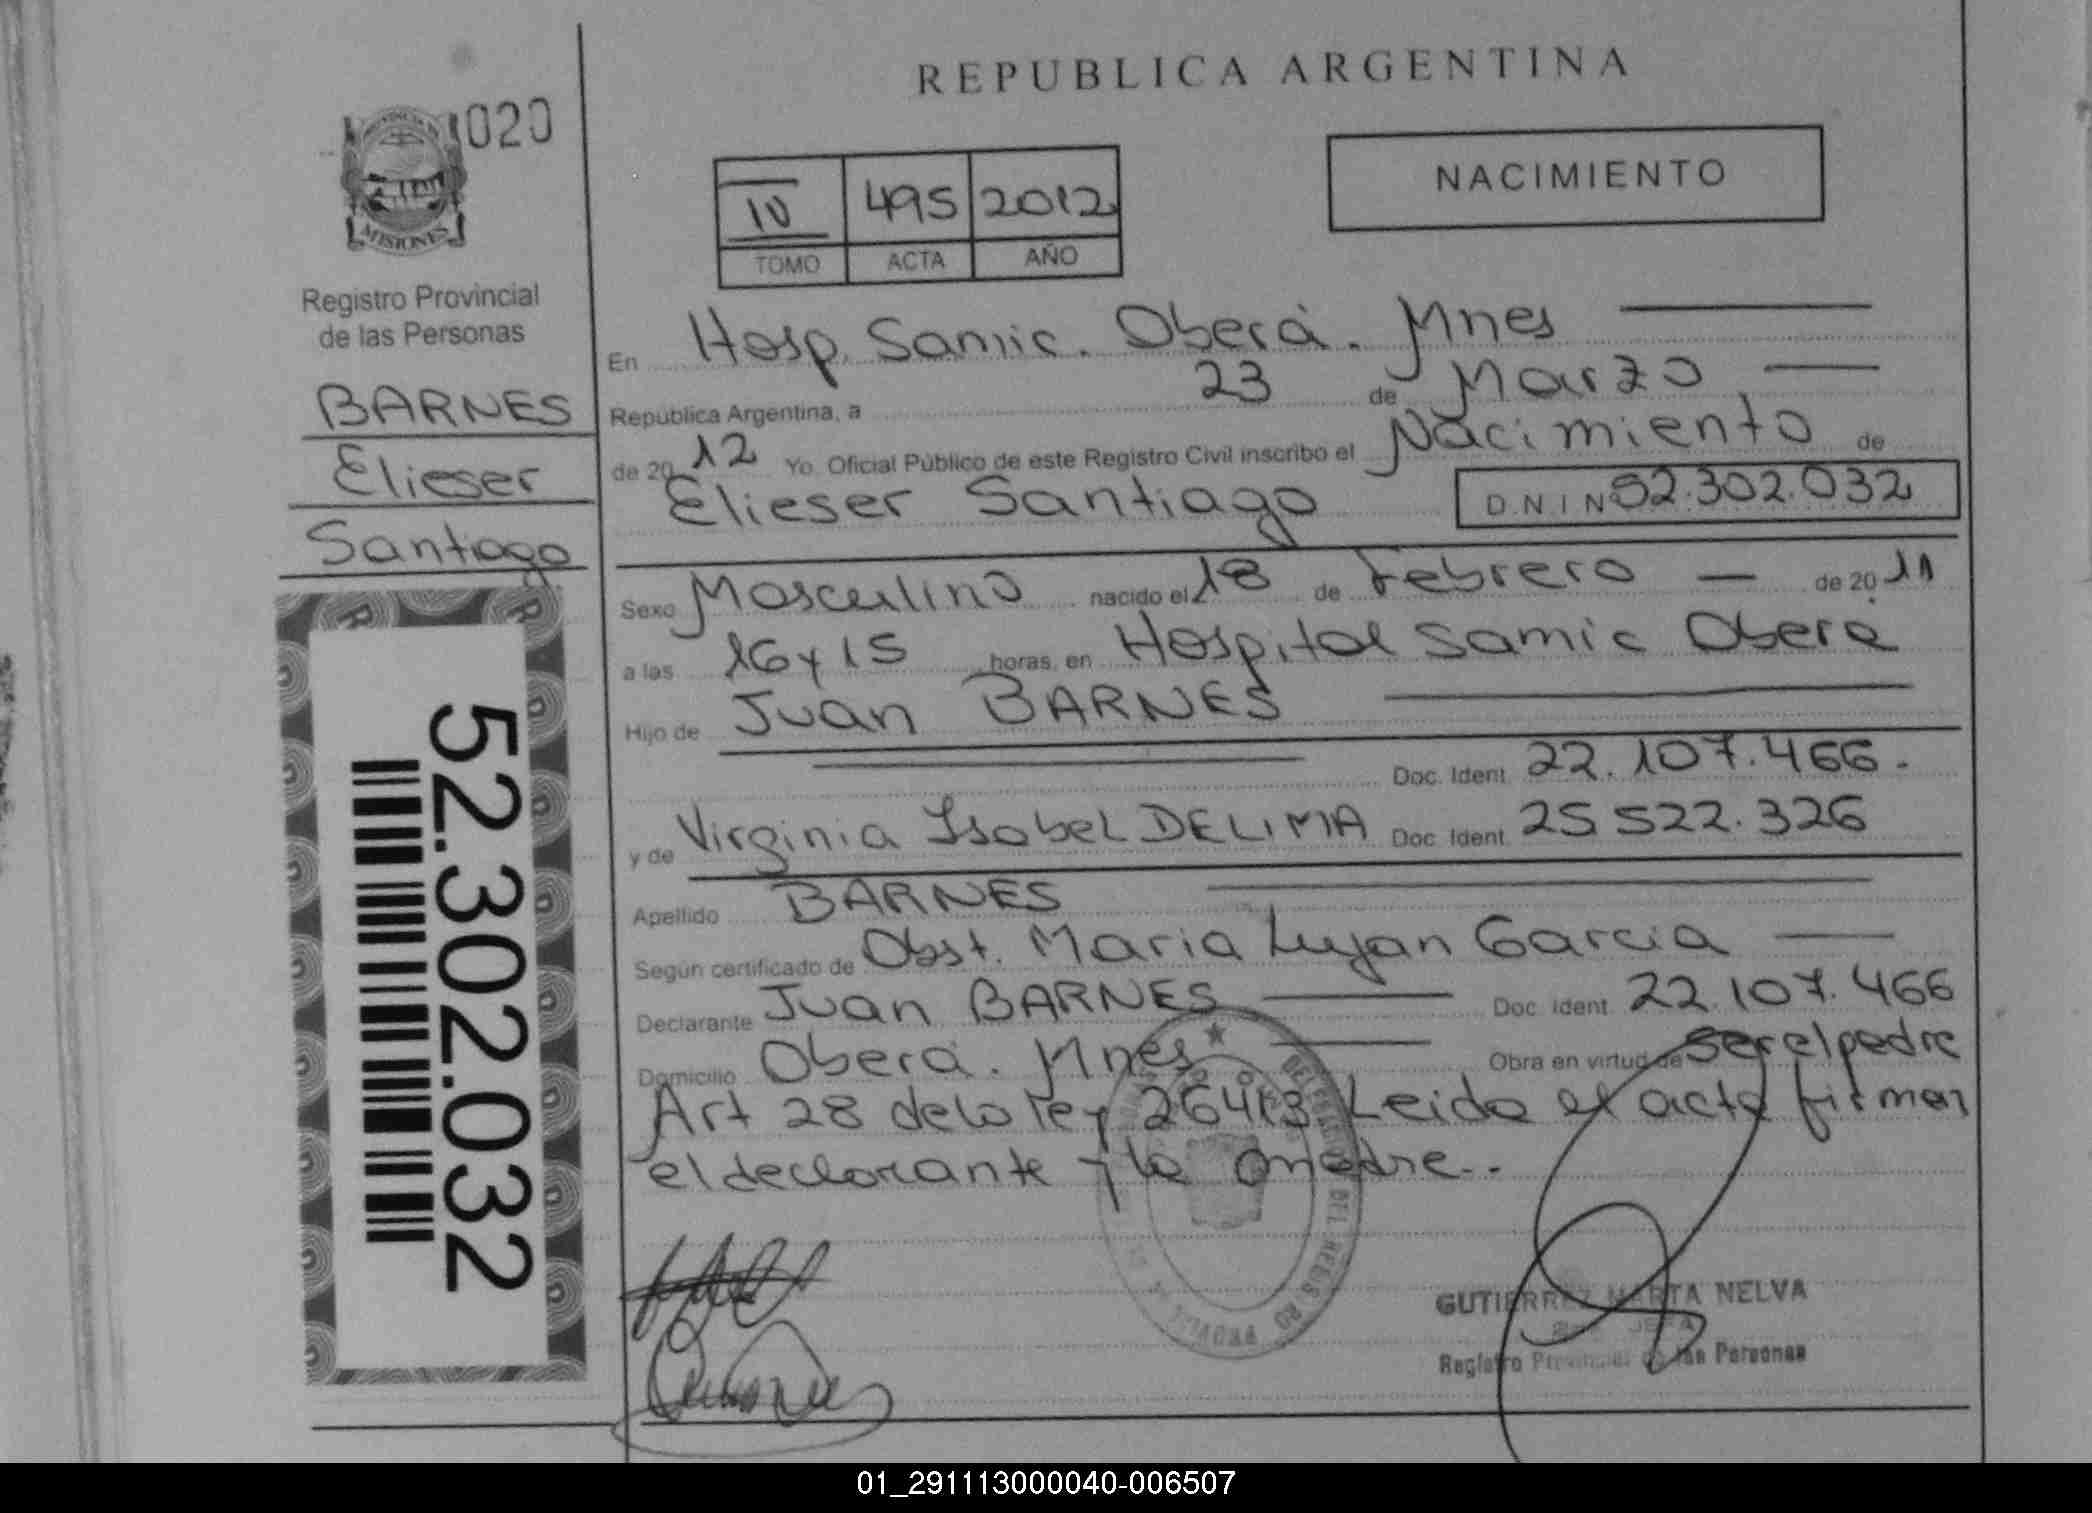 REPUBLICA ARGENTINA
020
MISIONES
Registro Provincial
de las Personas
BARNES
Elieser
Santiago
52.302.032
IV 495 2012
TOMO ACTA AÑO
NACIMIENTO
En Hosp. Samic. Oberá. Mnes
Republica Argentina, a 23 de Marzo
de 2012 Yo. Oficial Público de este Registro Civil inscribo el Nacimiento de
Elieser Santiago D.N.I N 52.302.032
Sexo Masculino nacido el 18 de Febrero de 2011
a las 16 y 15 horas, en Hospital Samic Oberá
Hijo de Juan BARNES
Doc. Ident. 22.107.466.
y de Virginia Isabel DELIMA Doc. Ident. 25 522.326
Apellido BARNES
Según certificado de Obst. Maria Lujan Garcia
Declarante Juan BARNES Doc. Ident. 22.107.466
Domicilio Oberá. Mnes Obra en virtud de ser el padre
Art 28 de la ley 26413 Leida el acta firman
el declarante y la madre..
GUTIERREZ MARTA NELVA
JEFA
Registro Provincial de las Personas
01_291113000040-006507